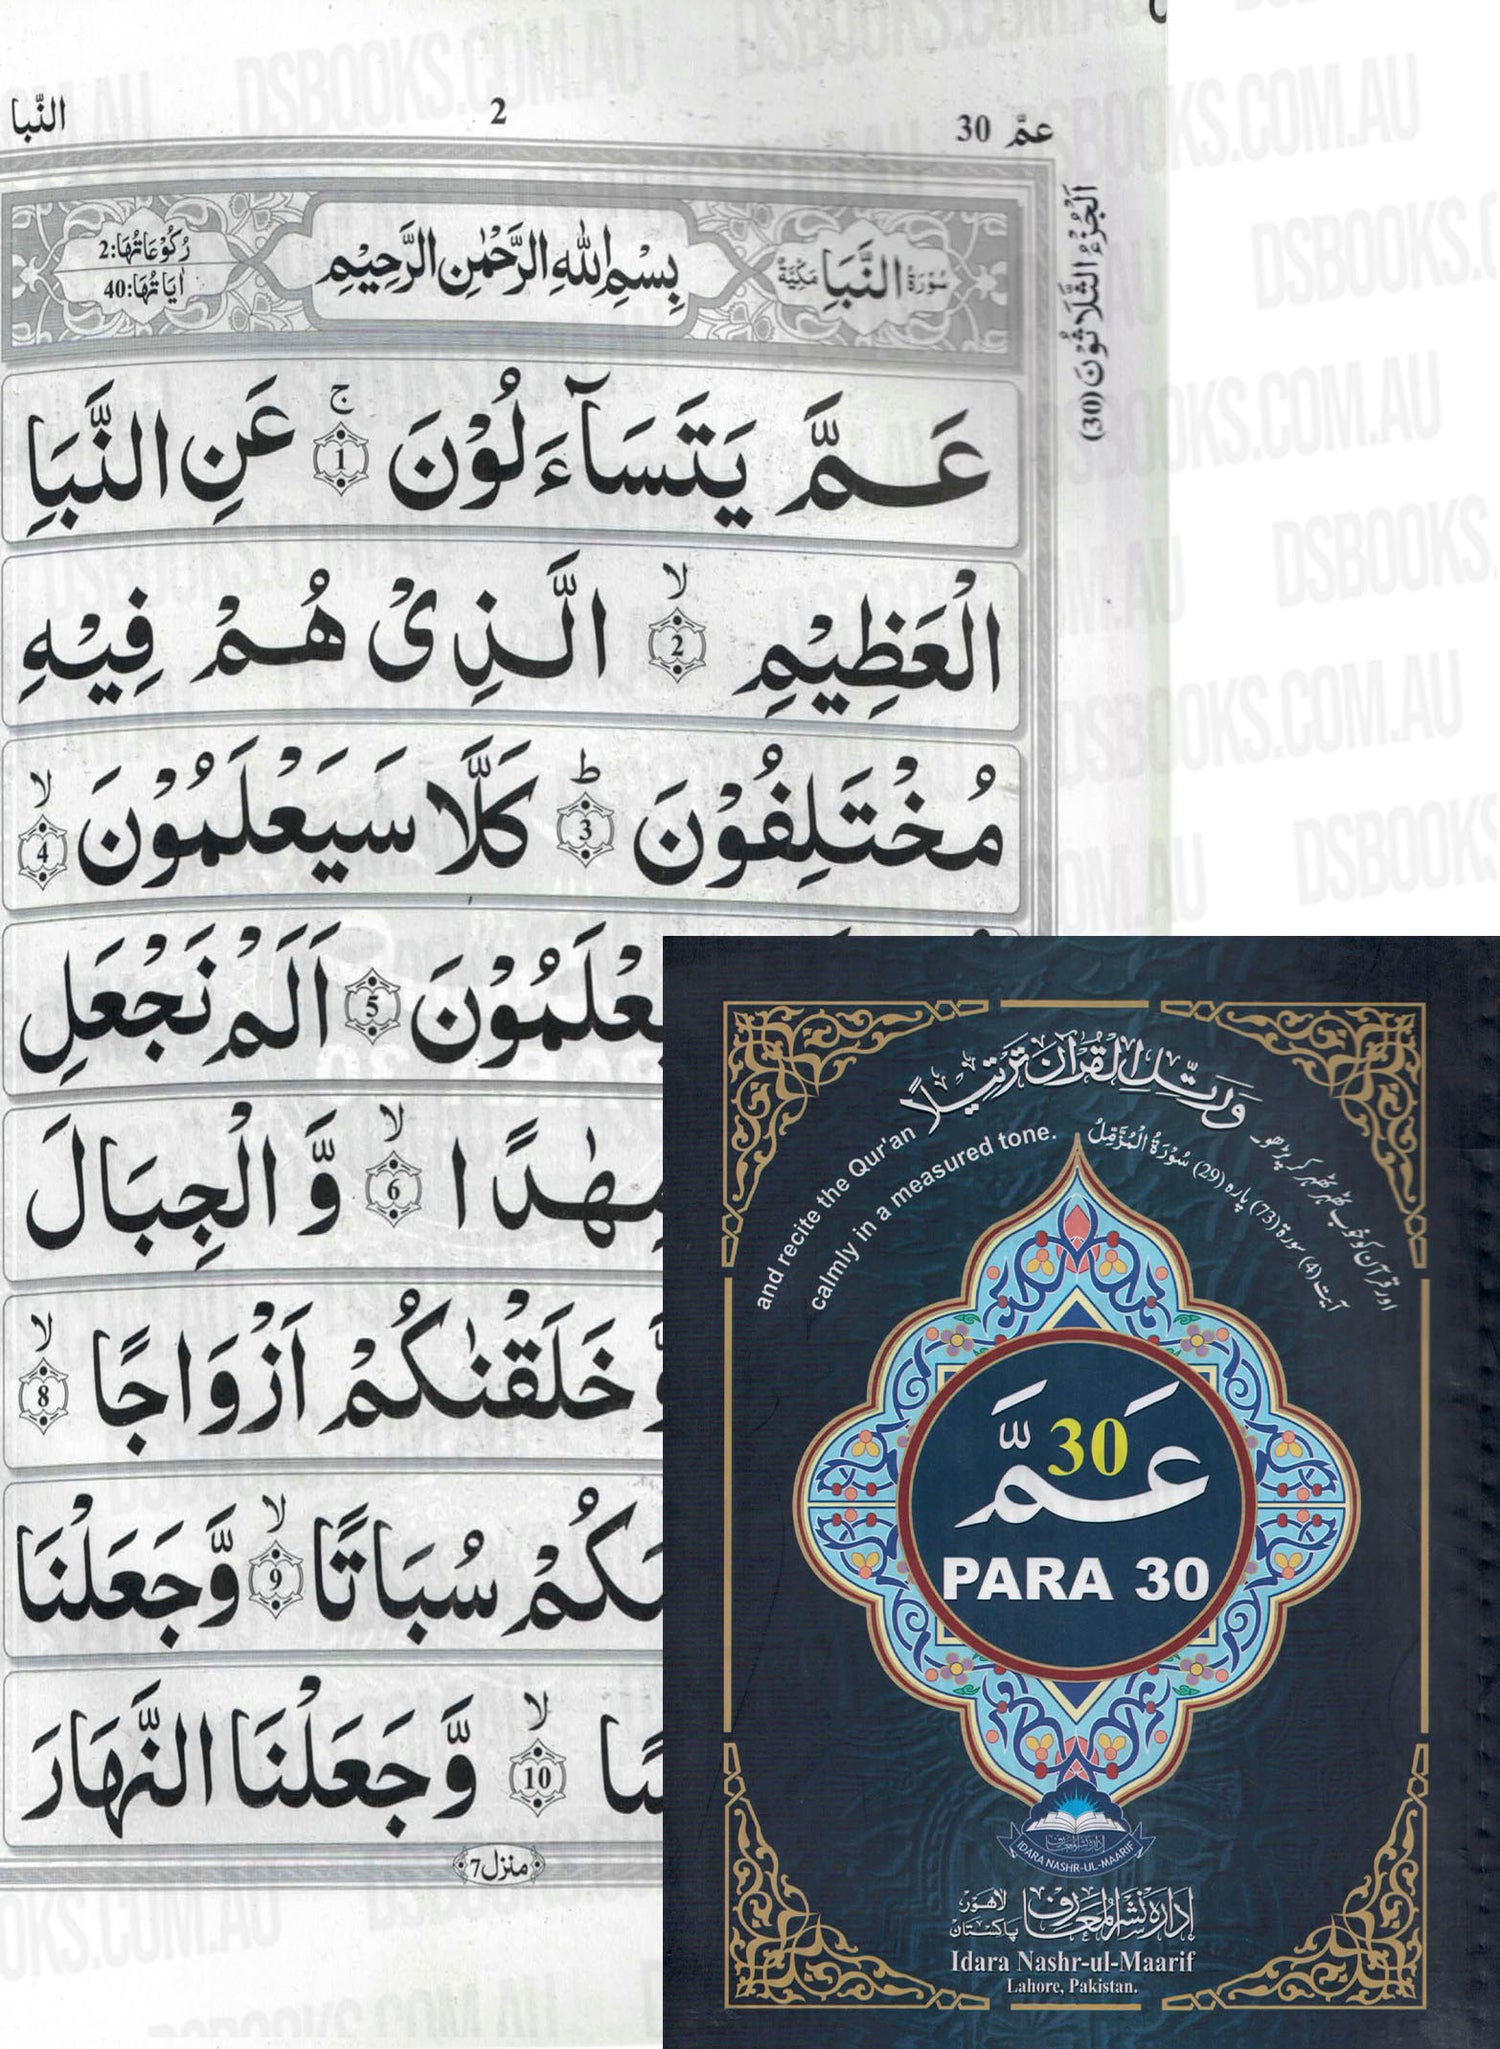 عمّ 30
2
النّبا
اَلْجُزْءُ الثَّلَاثُوْنَ (30)
سُوْرَةُ النَّبَاِ مَكِّيَّةٌ
بِسْمِ اللهِ الرَّحْمٰنِ الرَّحِيْمِ
رُكُوْعَاتُهَا:2
اٰيَاتُهَا:40
عَمَّ يَتَسَآءَلُوْنَ ۚ 1 عَنِ النَّبَاِ
الْعَظِيْمِ ۙ 2 الَّذِىْ هُمْ فِيْهِ
مُخْتَلِفُوْنَ ؕ 3 كَلَّا سَيَعْلَمُوْنَ ۙ 4
عْلَمُوْنَ 5 اَلَمْ نَجْعَلِ
مِهٰدًا ۙ 6 وَّ الْجِبَالَ
وَّخَلَقْنٰكُمْ اَزْوَاجًا ۙ 8
كُمْ سُبَاتًا ۙ 9 وَّجَعَلْنَا
ا ۙ 10 وَّجَعَلْنَا النَّهَارَ
منزل 7
وَرَتِّلِ الْقُرْآنَ تَرْتِيْلًا
and recite the Qur'an
calmly in a measured tone.
اور قرآن کو خوب ٹھہر ٹھہر کر پڑھو
آیت (4) سورة (73) پارہ (29) سُوْرَةُ الْمُزَّمِّلُ
عَمَّ
30
PARA 30
IDARA NASHR-UL-MAARIF
ادارہ نشر المعارف لاہور پاکستان
Idara Nashr-ul-Maarif
Lahore, Pakistan.
DSBOOKS.COM.AU